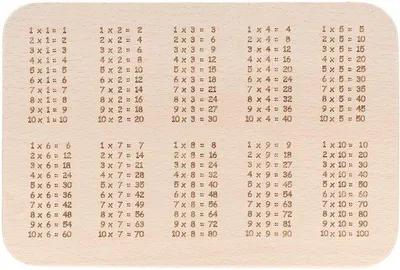 1 x 1 = 1
2 x 1 = 2
3 x 1 = 3
4 x 1 = 4
5 x 1 = 5
6 x 1 = 6
7 x 1 = 7
8 x 1 = 8
9 x 1 = 9
10 x 1 = 10
1 x 2 = 2
2 x 2 = 4
3 x 2 = 6
4 x 2 = 8
5 x 2 = 10
6 x 2 = 12
7 x 2 = 14
8 x 2 = 16
9 x 2 = 18
10 x 2 = 20
1 x 3 = 3
2 x 3 = 6
3 x 3 = 9
4 x 3 = 12
5 x 3 = 15
6 x 3 = 18
7 x 3 = 21
8 x 3 = 24
9 x 3 = 27
10 x 3 = 30
1 x 4 = 4
2 x 4 = 8
3 x 4 = 12
4 x 4 = 16
5 x 4 = 20
6 x 4 = 24
7 x 4 = 28
8 x 4 = 32
9 x 4 = 36
10 x 4 = 40
1 x 5 = 5
2 x 5 = 10
3 x 5 = 15
4 x 5 = 20
5 x 5 = 25
6 x 5 = 30
7 x 5 = 35
8 x 5 = 40
9 x 5 = 45
10 x 5 = 50
1 x 6 = 6
2 x 6 = 12
3 x 6 = 18
4 x 6 = 24
5 x 6 = 30
6 x 6 = 36
7 x 6 = 42
8 x 6 = 48
9 x 6 = 54
10 x 6 = 60
1 x 7 = 7
2 x 7 = 14
3 x 7 = 21
4 x 7 = 28
5 x 7 = 35
6 x 7 = 42
7 x 7 = 49
8 x 7 = 56
9 x 7 = 63
10 x 7 = 70
1 x 8 = 8
2 x 8 = 16
3 x 8 = 24
4 x 8 = 32
5 x 8 = 40
6 x 8 = 48
7 x 8 = 56
8 x 8 = 64
9 x 8 = 72
10 x 8 = 80
1 x 9 = 9
2 x 9 = 18
3 x 9 = 27
4 x 9 = 36
5 x 9 = 45
6 x 9 = 54
7 x 9 = 63
8 x 9 = 72
9 x 9 = 81
10 x 9 = 90
1 x 10 = 10
2 x 10 = 20
3 x 10 = 30
4 x 10 = 40
5 x 10 = 50
6 x 10 = 60
7 x 10 = 70
8 x 10 = 80
9 x 10 = 90
10 x 10 = 100